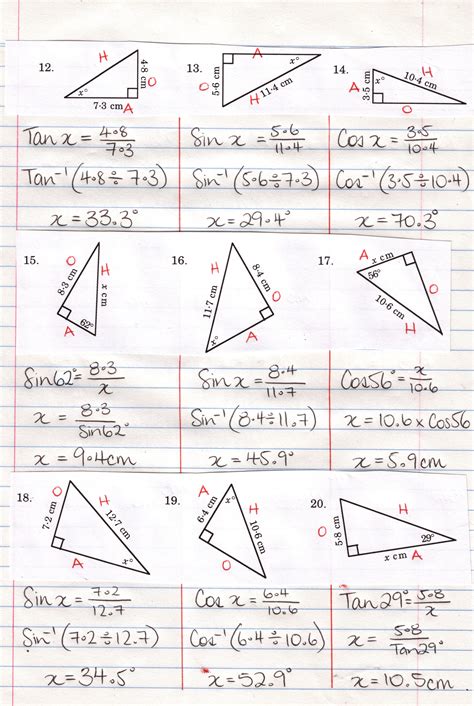 12.
H
4·8 cm
O
x°
7·3 cm
A
Tan x = 4·8/7·3
Tan⁻¹ (4·8 ÷ 7·3)
x = 33.3°
13.
A
x°
5·6 cm
O
H
11·4 cm
Sin x = 5·6/11·4
Sin⁻¹ (5·6 ÷ 7·3)
x = 29.4°
14.
H
10·4 cm
A
3·5 cm
x°
O
Cos x = 3·5/10·4
Cos⁻¹ (3·5 ÷ 10·4)
x = 70.3°
15.
O
8·3 cm
H
x cm
62°
A
Sin62° = 8·3/x
x = 8·3/Sin62°
x = 9.4cm
16.
H
11·7 cm
8·4 cm
O
x°
A
Sin x = 8·4/11.7
Sin⁻¹ (8·4 ÷ 11.7)
x = 45.9°
17.
A
x cm
56°
O
10·6 cm
H
Cos56° = x/10.6
x = 10.6 x Cos56
x = 5.9cm
18.
O
7·2 cm
H
12·7 cm
A
x°
Sin x = 7·2/12.7
Sin⁻¹ (7·2 ÷ 12.7)
x = 34.5°
19.
A
6·4 cm
x°
H
10·6 cm
O
Cos x = 6·4/10.6
Cos⁻¹ (6·4 ÷ 10.6)
x = 52.9°
20.
O
5·8 cm
H
29°
x cm
A
Tan29° = 5·8/x
x = 5·8/Tan29°
x = 10.5cm